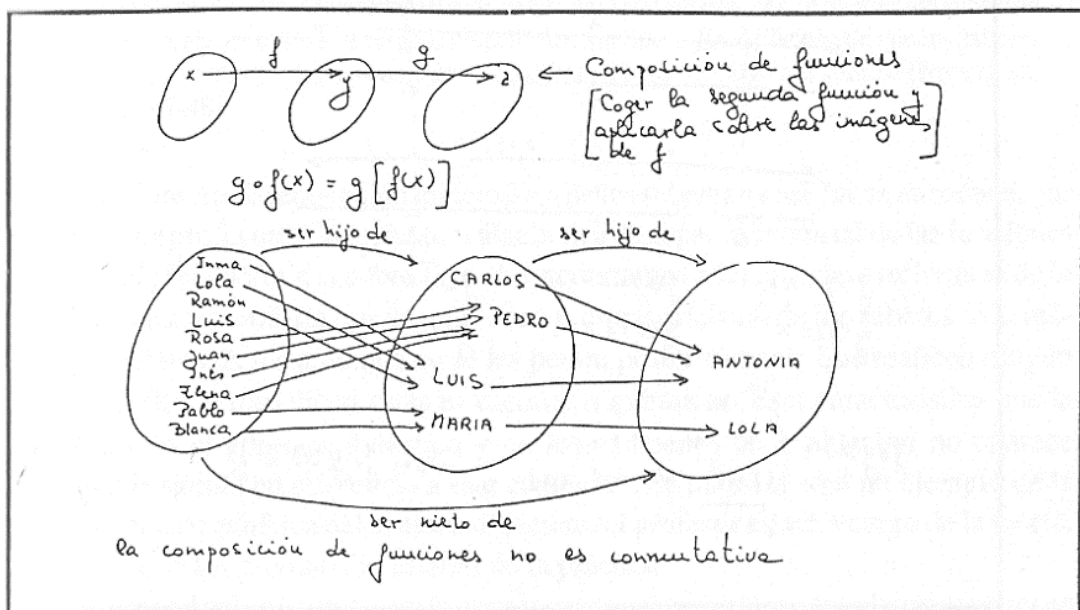 f
g
x
y
z
← Composición de funciones
[Coger la segunda función y
aplicarla sobre las imágenes
de f]
g∘f(x) = g[f(x)]
ser hijo de
ser hijo de
Inma
Lola
Ramón
Luis
Rosa
Juan
Inés
Elena
Pablo
Blanca
CARLOS
PEDRO
LUIS
MARIA
ANTONIA
LOLA
ser nieto de
la composición de funciones no es conmutativa